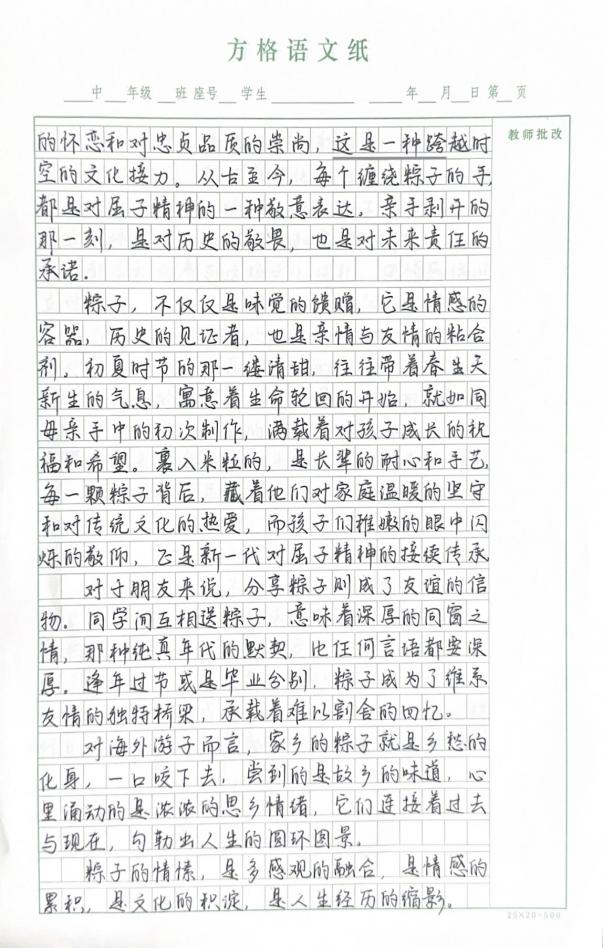 方格语文纸
中 年级 班 座号 学生 年 月 日 第 页
教师批改
的怀恋和对忠贞品质的崇尚，这是一种跨越时
空的文化接力。从古至今，每个缠绕粽子的手，
都是对屈子精神的一种敬意表达。亲手剥开的
那一刻，是对历史的敬畏，也是对未来责任的
承诺.
粽子，不仅仅是味觉的馈赠，它是情感的
容器，历史的见证者，也是亲情与友情的粘合
剂。初夏时节的那一缕清甜，往往带着春生天
新生的气息，寓意着生命轮回的开始，就如同
母亲手中的初次制作，满载着对孩子成长的祝
福和希望。裹入米粒的，是长辈的耐心和手艺，
每一颗粽子背后，藏着他们对家庭温暖的坚守
和对传统文化的热爱，而孩子们稚嫩的眼中闪
烁的敬仰，是新一代对屈子精神的接续传承
对于朋友来说，分享粽子则成了友谊的信
物。同学间互相送粽子，意味着深厚的同窗之
情，那种纯真年代的默契，比任何言语都要深
厚。逢年过节或是毕业分别，粽子成为了维系
友情的独特桥梁，承载着难以割舍的回忆。
对海外游子而言，家乡的粽子就是乡愁的
化身，一口咬下去，尝到的是故乡的味道，心
里涌动的是浓浓的思乡情绪，它们连接着过去
与现在，勾勒出人生的圆环图景。
粽子的情愫，是多感观的融合，是情感的
累积，是文化的积淀，是人生经历的缩影。
25×20=500